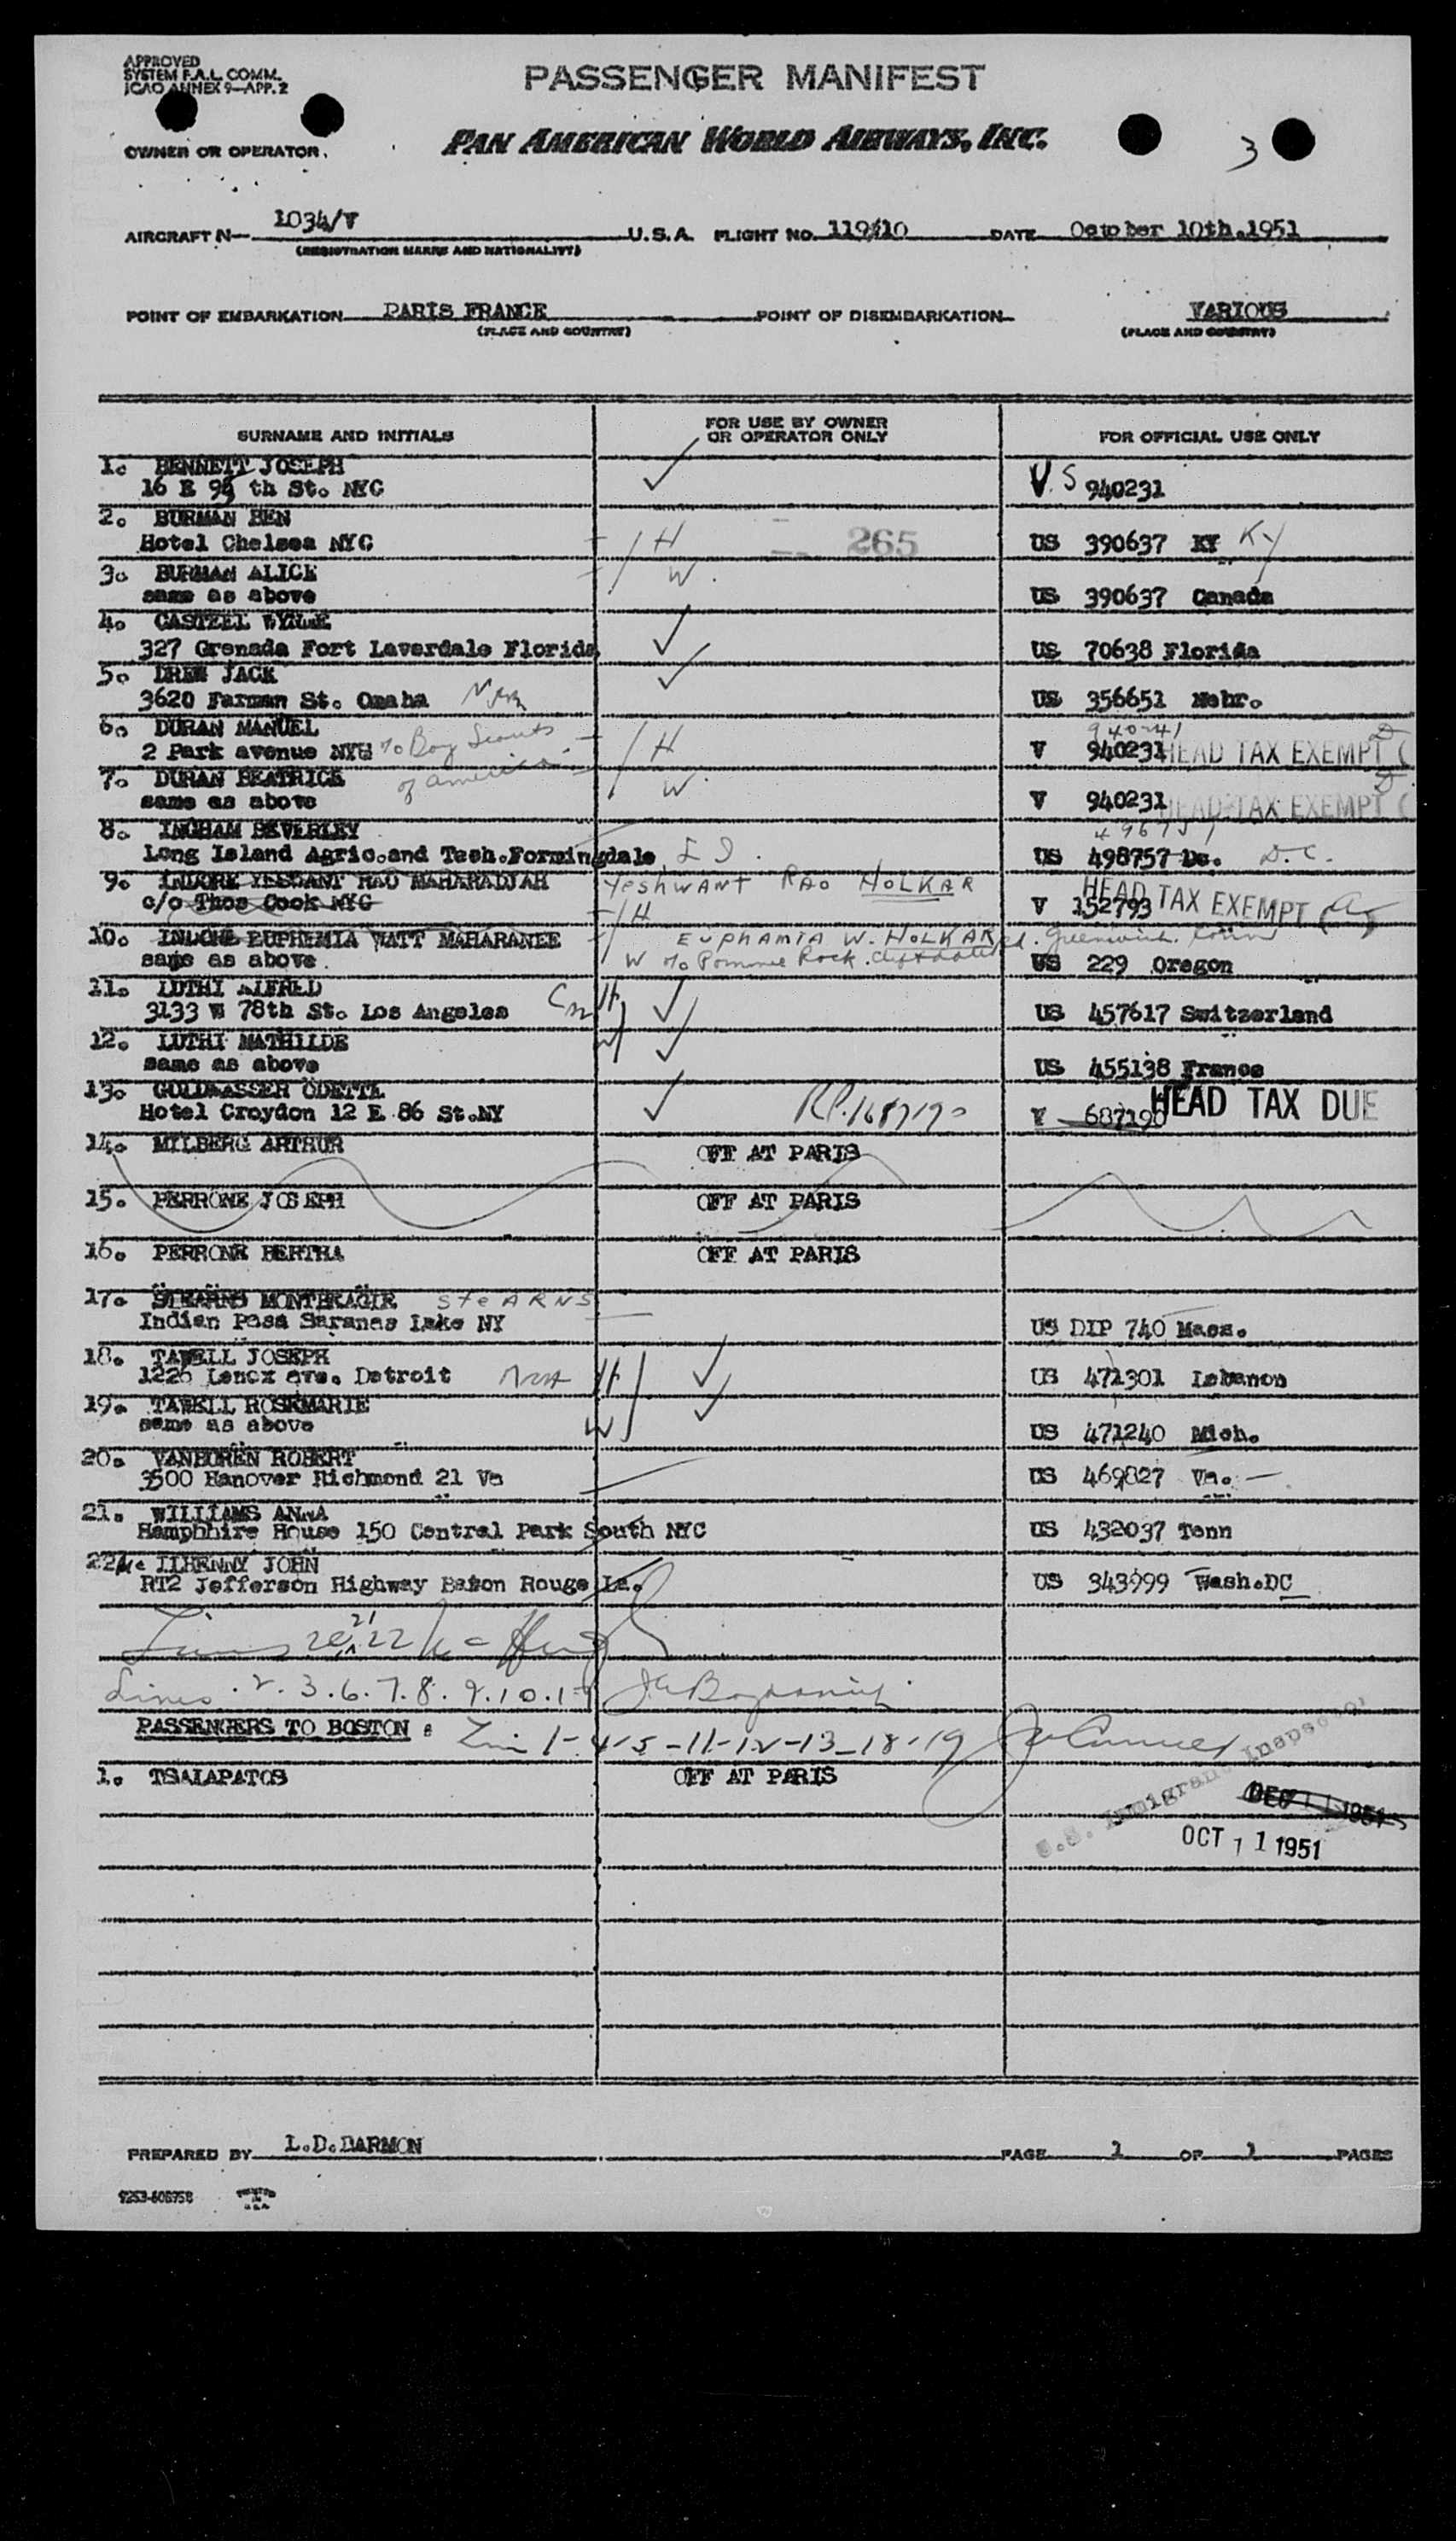 APPROVED
SYSTEM F.A.L. COMM.
ICAO ANNEX 9—APP. 2
PASSENGER MANIFEST
OWNER OR OPERATOR.
PAN AMERICAN WORLD AIRWAYS, INC.
3
AIRCRAFT N— 1034/V U.S.A. FLIGHT NO. 119/10 DATE October 10th.1951
(REGISTRATION MARKS AND NATIONALITY)
POINT OF EMBARKATION PARIS FRANCE POINT OF DISEMBARKATION VARIOUS
(PLACE AND COUNTRY) (PLACE AND COUNTRY)
SURNAME AND INITIALS
FOR USE BY OWNER
OR OPERATOR ONLY
FOR OFFICIAL USE ONLY
1. BENNETT JOSEPH
16 E 95 th St. NYC V.S 940231
2. BURMAN BEN
Hotel Chelsea NYC H 265 US 390637 KY Ky
3. BURMAN ALICE
same as above W. US 390637 Canada
4. CASTZEL WYLIE
327 Grenada Fort Laverdale Florida US 70638 Florida
5. DREW JACK
3620 Farman St. Omaha US 356651 Nebr.
6. DURAN MANUEL
2 Park avenue NYC % Boy Scouts H V 940231 HEAD TAX EXEMPT
7. DURAN BEATRICE of america
same as above W. V 940231 HEAD TAX EXEMPT
8. INGHAM BEVERLEY
Long Island Agric.and Tech.Formingdale L I. US 498757 De. D.C.
9. INDORE YESDANT RAO MAHARADJAH Yeshwant RAO HOLKAR
c/o Thos Cook NYC H V 152793 HEAD TAX EXEMPT
10. INDORE EUPHEMIA WATT MAHARANEE EUPHAMIA W. HOLKAR
same as above. W % Pomme Rock. Greenwich. Conn US 229 Oregon
11. LUTHI ALFRED
3133 W 78th St. Los Angeles H US 457617 Switzerland
12. LUTHI MATHILDE
same as above W US 455138 France
13. GOLDWASSER ODETTE
Hotel Croydon 12 E 86 St.NY V 687190 HEAD TAX DUE
14. MILBERG ARTHUR OFF AT PARIS
15. PERRONE JOSEPH OFF AT PARIS
16. PERRONE BERTHA OFF AT PARIS
17. STEARNS MONTEKAGIE SteARNS
Indian Pass Saranas Lake NY US DIP 740 Mass.
18. TAWELL JOSEPH
1226 Lenox ave. Detroit H US 471301 Lebanon
19. TAWELL ROSEMARIE
same as above W US 471240 Mich.
20. VANBOREN ROBERT
3500 Hanover Richmond 21 Va US 469827 Va. —
21. WILLIAMS ANNA
Hamphhire House 150 Central Park South NYC US 432037 Tenn
22 Mc ILHENNY JOHN
RT2 Jefferson Highway Baton Rouge La. US 343999 Wash.DC
Lines 20, 21 22
Lines . 2. 3. 6. 7. 8. 9. 10. 17
PASSENGERS TO BOSTON : Lin 1-4-5-11-12-13-18-19
1. TSALAPATOS OFF AT PARIS
U.S. Immigrant Inspector
DEC 11 1951
OCT 11 1951
PREPARED BY L.D.DARMON PAGE 1 OF 1 PAGES
9253-608758 PRINTED IN U.S.A.